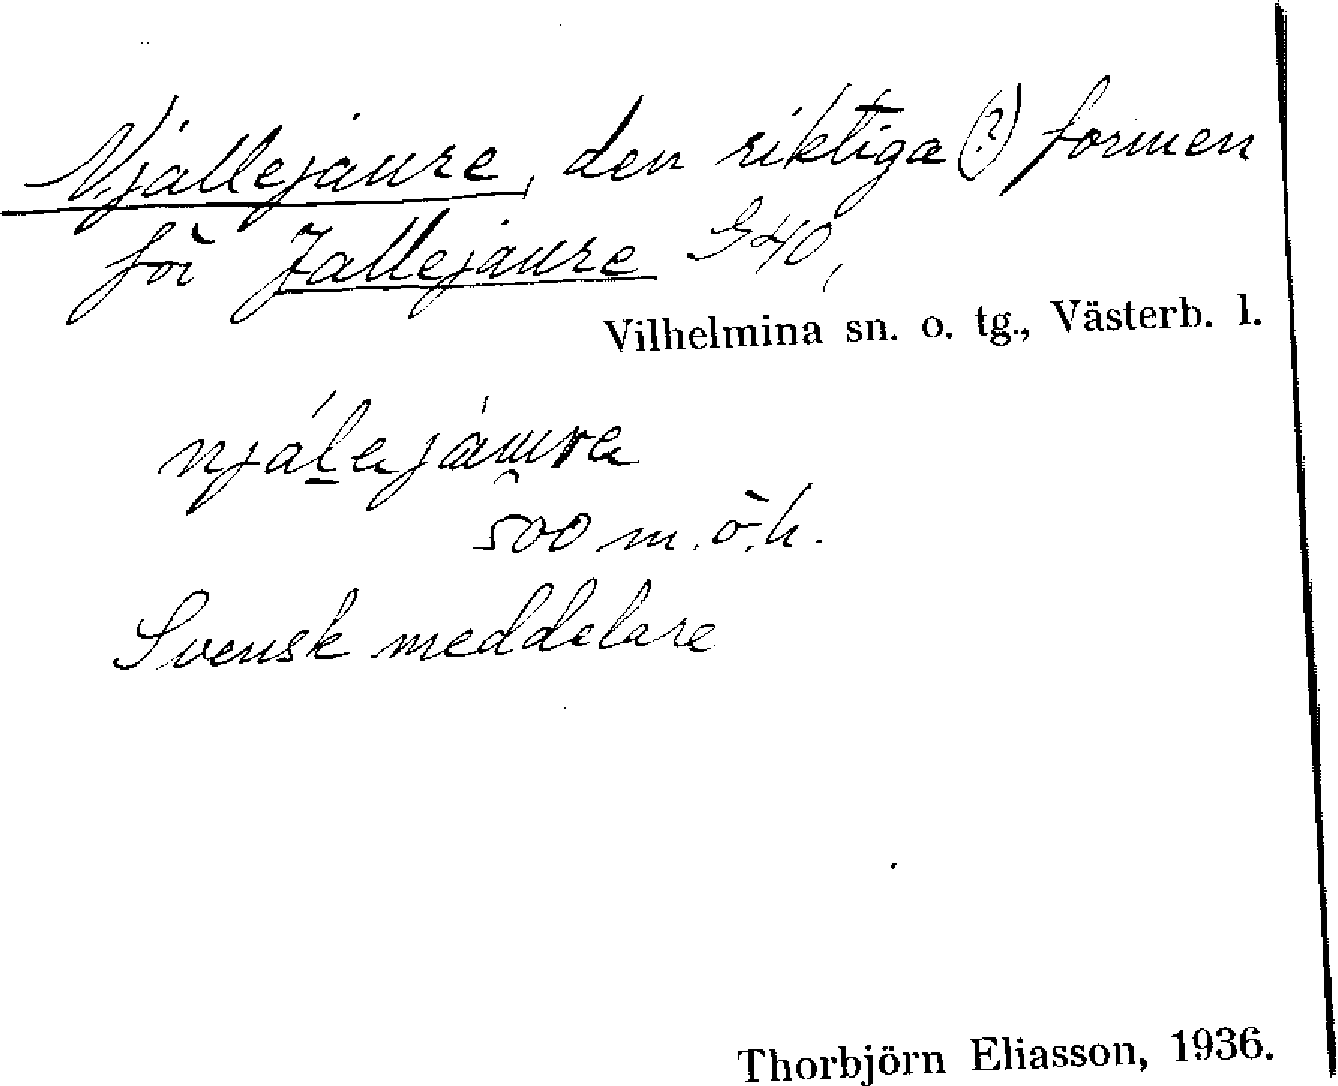 Njallejaure, den riktiga (?) formen
för Jallejaure G40,
Vilhelmina sn. o. tg., Västerb. l.
njálejàure
500 m.ö.h.
Svensk meddelare
Thorbjörn Eliasson, 1936.